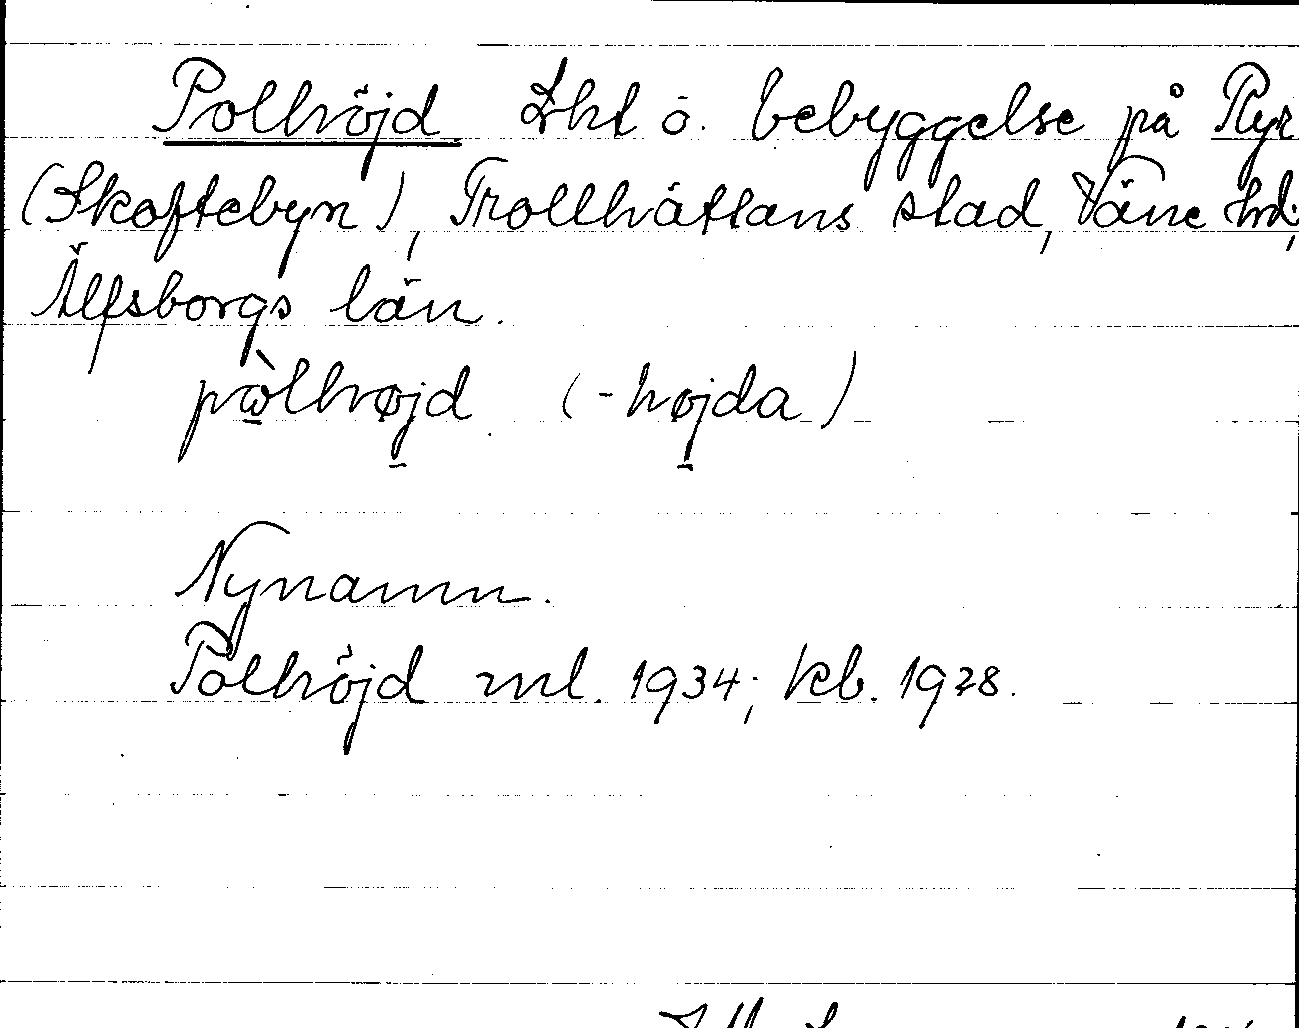 Polhöjd Lht o. bebyggelse på Ryr
(Skoftebyn), Trollhättans stad, Väne hd,
Älfsborgs län.
pòlhøjd (-højda)
Nynamn.
Polhöjd ml. 1934; kb. 1928.